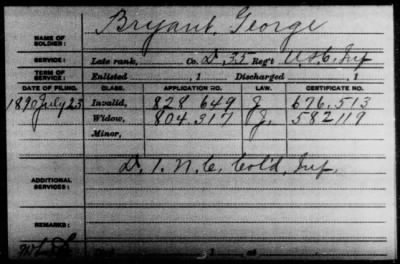 Bryant, George
NAME OF SOLDIER:
SERVICE: Late rank, Co. D, 35 Reg't U.S.C. Inf
TERM OF SERVICE: Enlisted , 1 Discharged , 1
DATE OF FILING. CLASS. APPLICATION NO. LAW. CERTIFICATE NO.
1890 July 25 Invalid, 828 649 J 676,513
Widow, 804.317 J. 582119
Minor,
D. 1. N. C. Col'd, Inf.
ADDITIONAL SERVICES:
REMARKS: